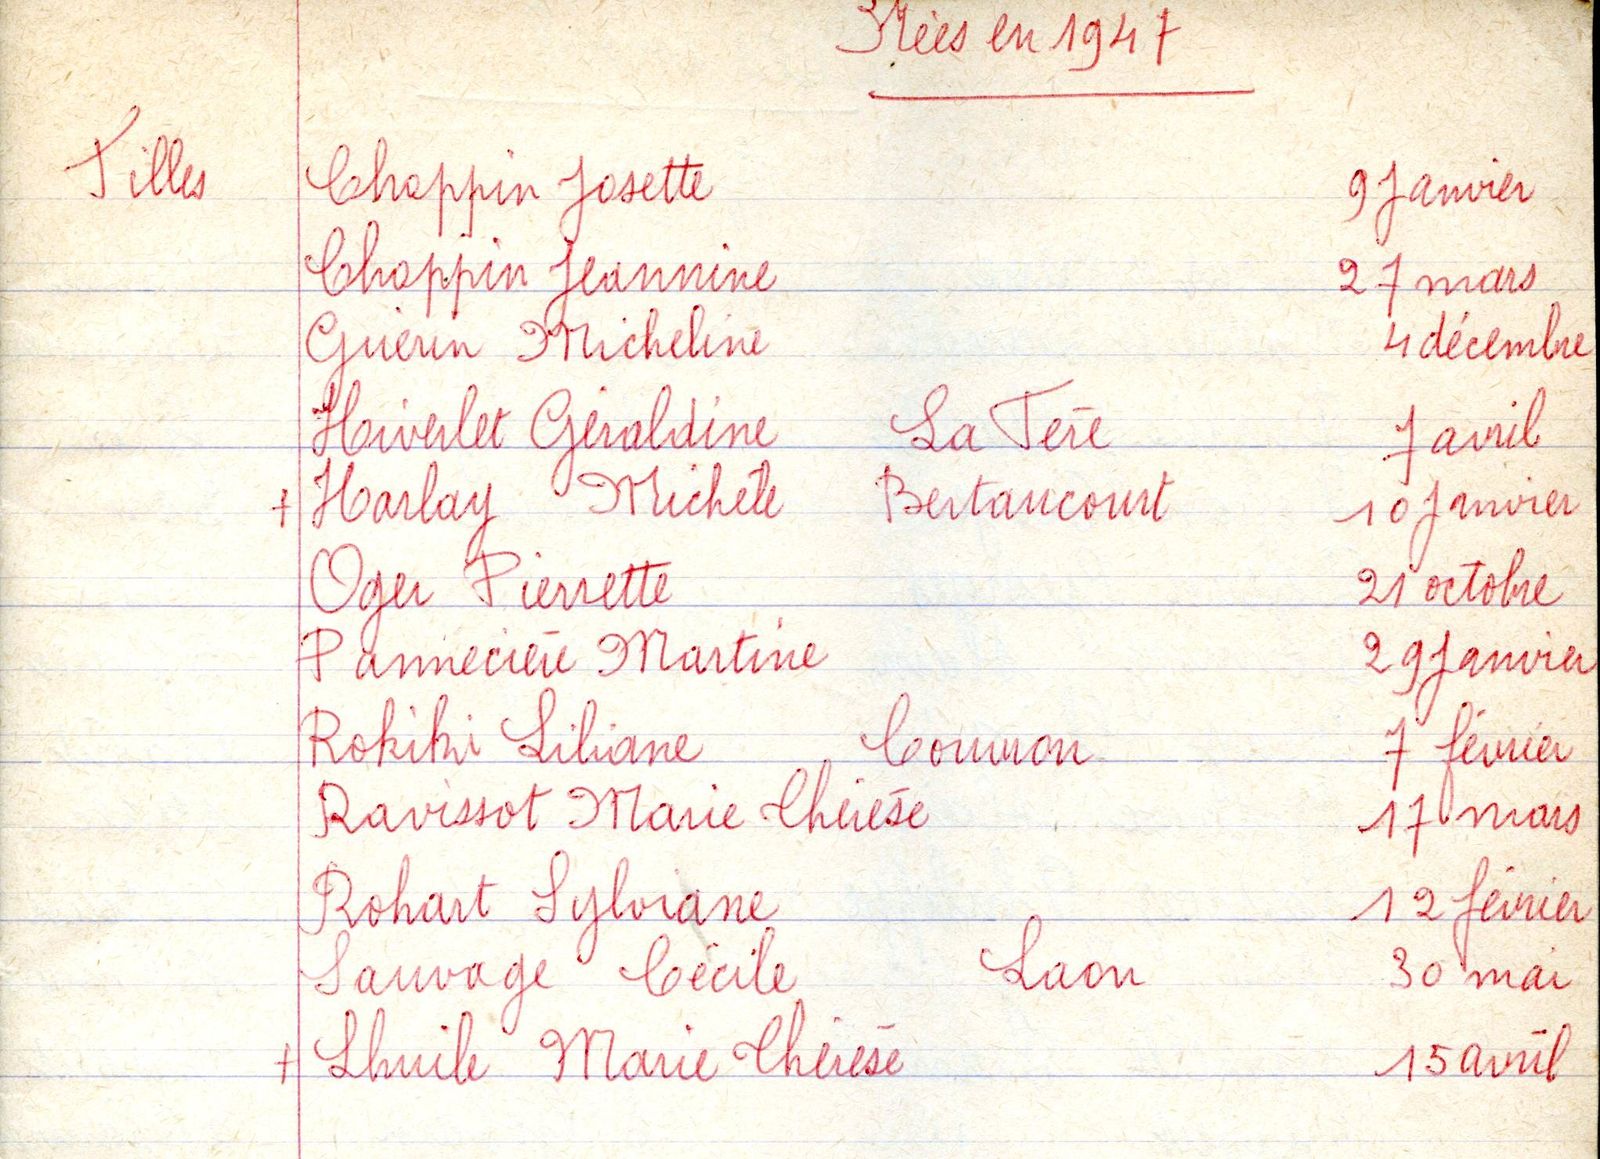 Nées en 1947
Filles Choppin Josette 9 Janvier
Choppin Jeannine 27 mars
Guérin Micheline 4 décembre
Hiverlet Géraldine La Fère 7 avril
+ Harlay Michèle Bertaucourt 10 Janvier
Oger Pierrette 21 octobre
Pannecière Martine 29 Janvier
Rokiki Liliane Couvron 7 février
Ravissot Marie Thérèse 17 mars
Rohart Sylviane 12 février
Sauvage Cécile Laon 30 mai
+ Lhuile Marie Thérèse 15 avril